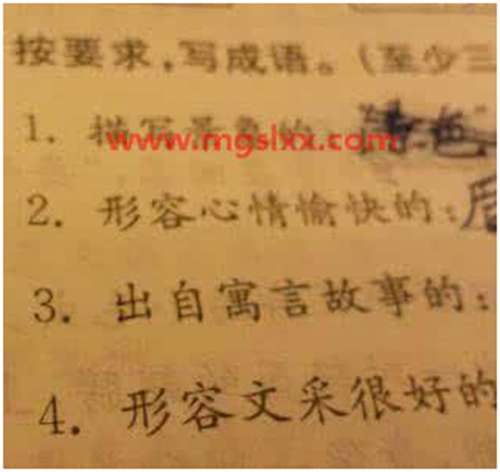 按要求，写成语。（至少三
1. 描写景色的：
www.mgslxx.com
2. 形容心情愉快的：
3. 出自寓言故事的：
4. 形容文采很好的